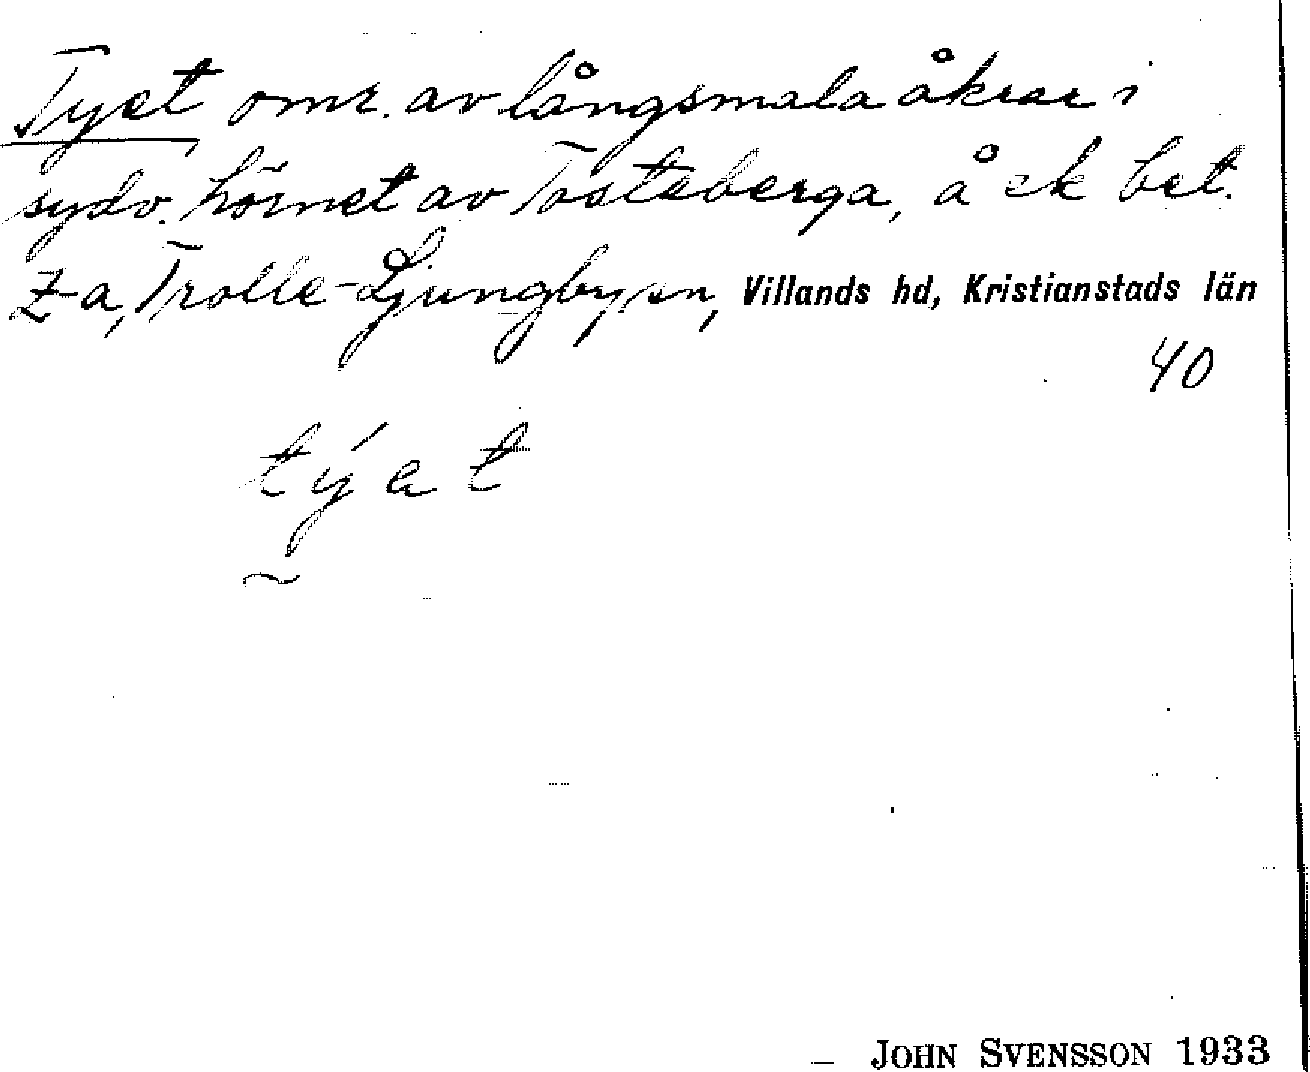 Tyet omr. av långsmala åkrar i
sydv. hörnet av Tosteberga, å ek bet.
Za, Trolle-Ljungby sn, Villands hd, Kristianstads län
40
týat
JOHN SVENSSON 1933